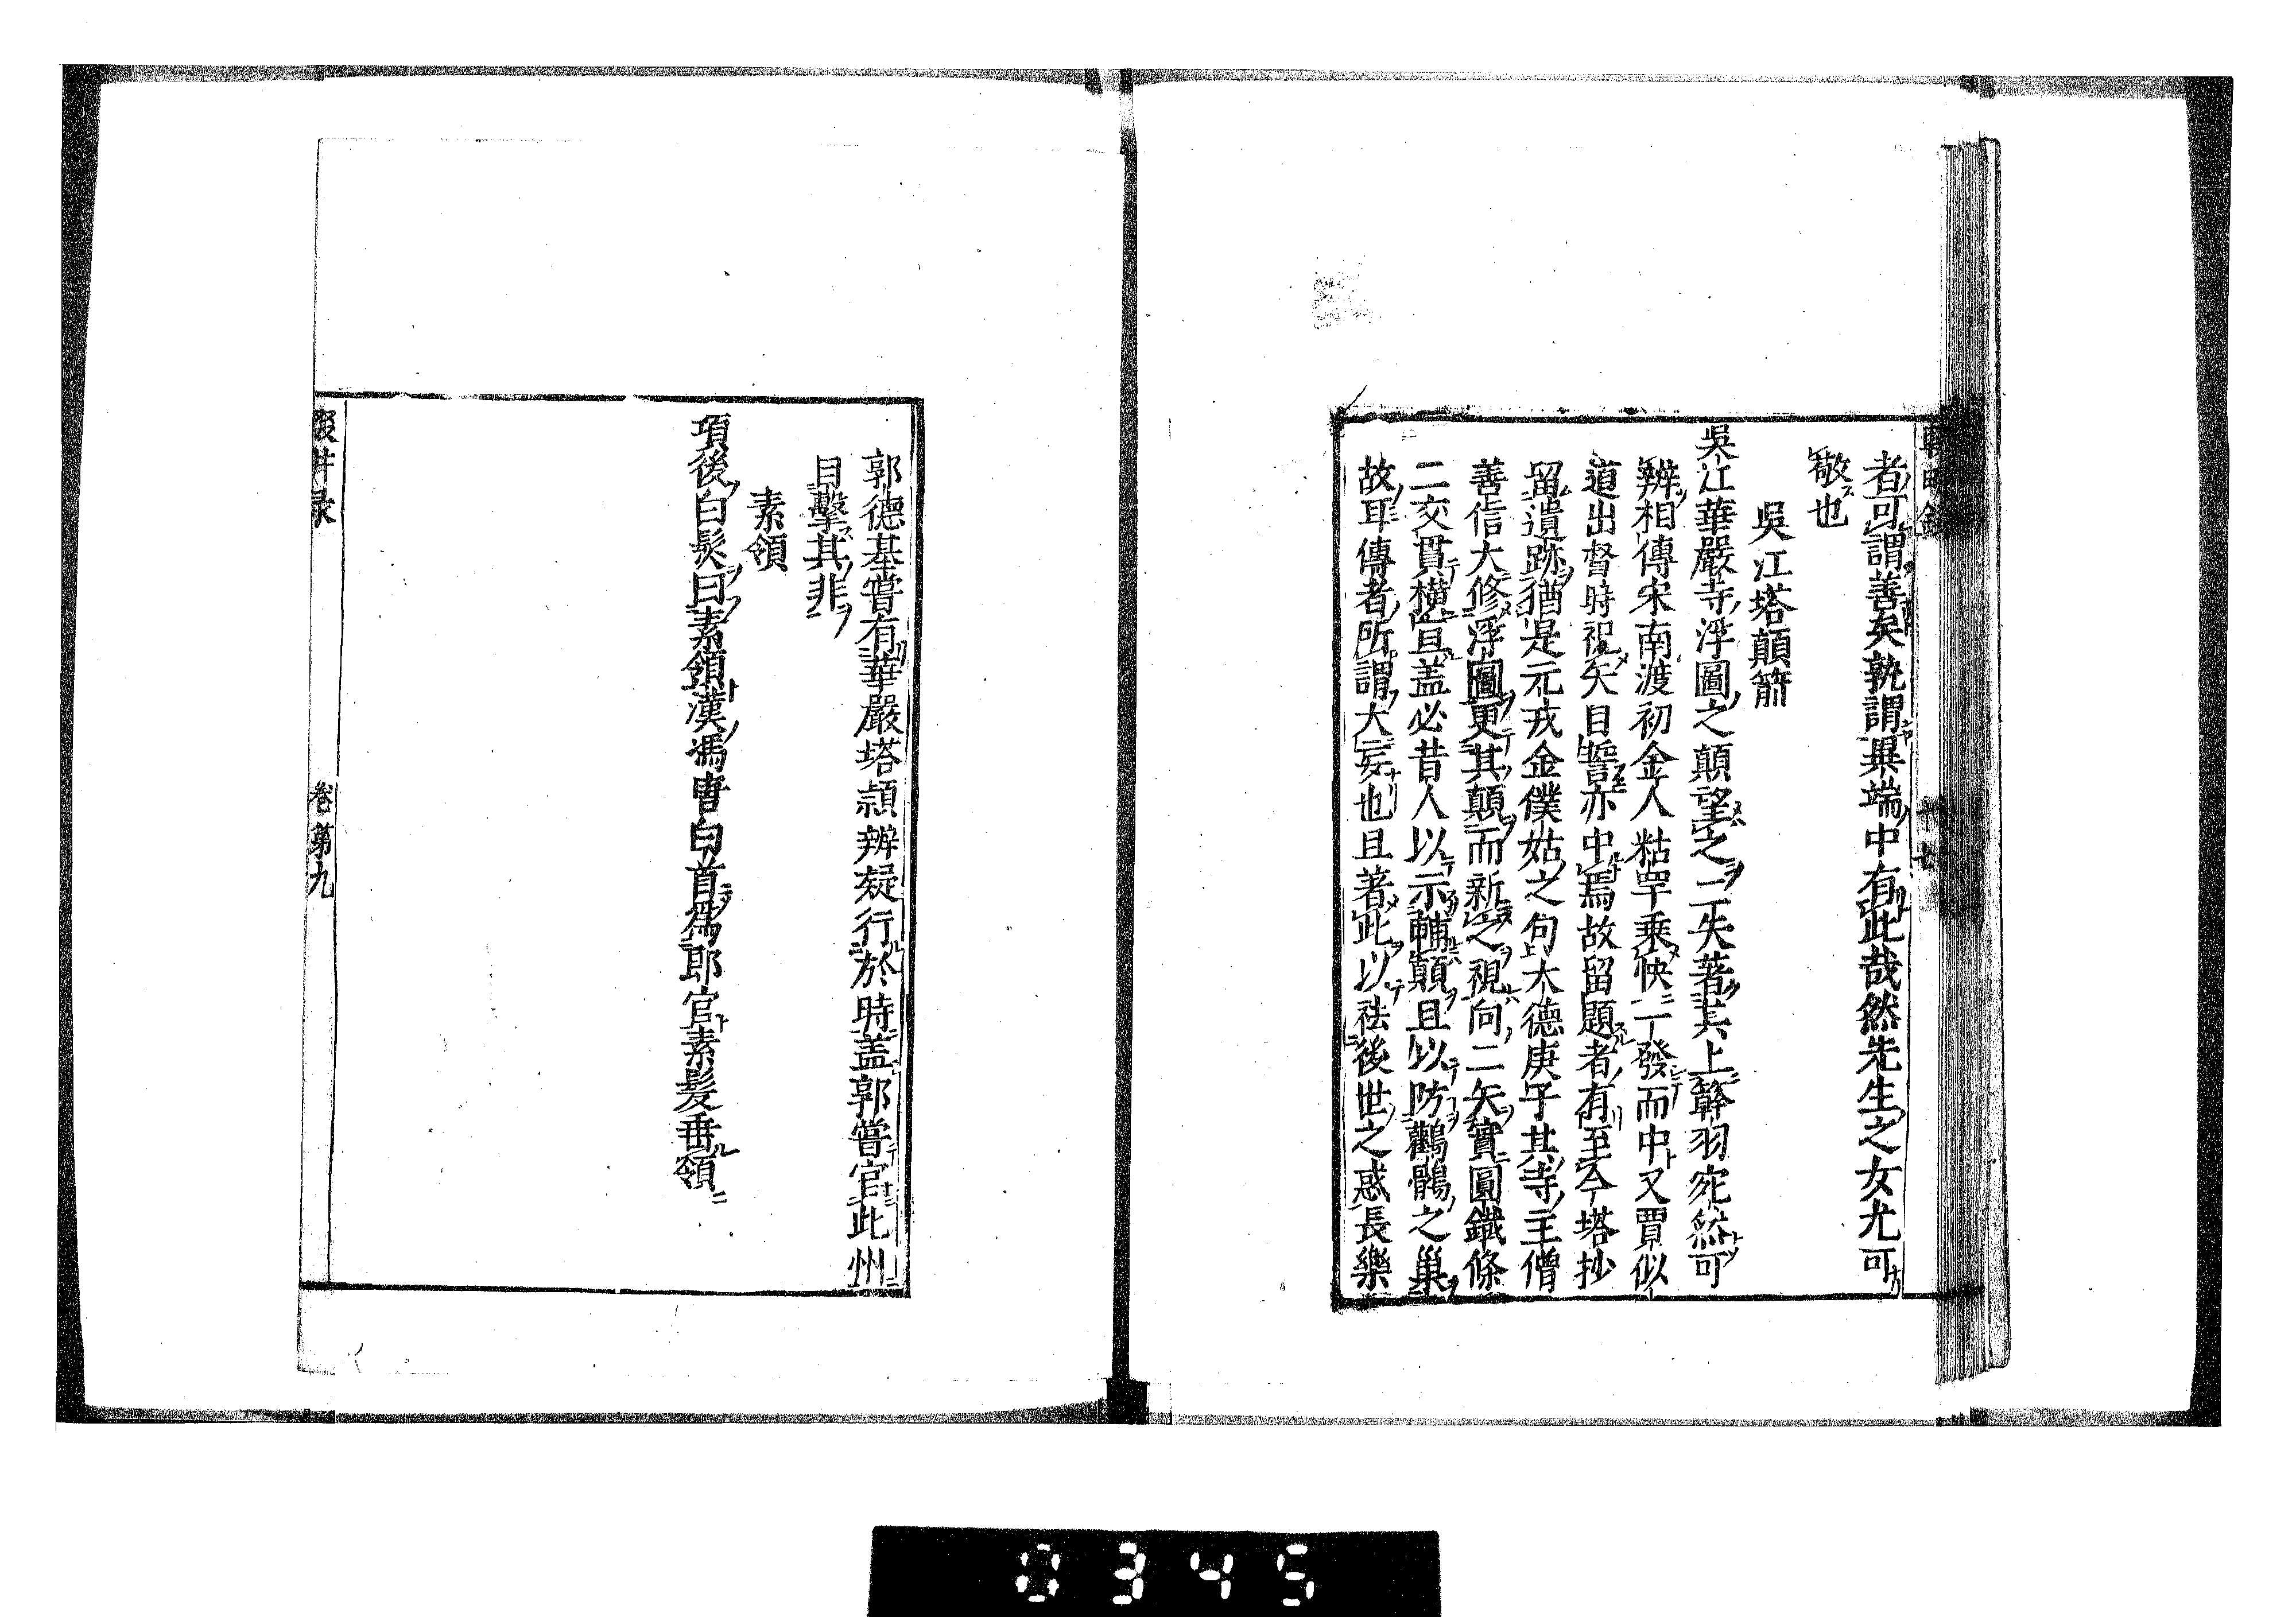 者可謂善矣孰謂異端中有此哉然先生之女尤可
敬也
吳江塔顛箭
吳江華嚴寺浮圖之顛望之二矢著其上簳羽宛然可
辨相傳宋南渡初金人粘罕乘怏一發而中又賈似
道出督時祀矢目誓亦中焉故留題者有至今塔抄
留遺跡猶是元戎金僕姑之句大德庚子其寺主僧
善信大修浮圖更其顛而新之視向二矢實圓鐵條
二交貫橫亘盖必昔人以示輔顛且以防鸛鶻之巢
故耳傳者所謂大妄也且著此以祛後世之惑長樂
郭德基嘗有華嚴塔顛辨疑行於時盖郭嘗官此州
目擊其非
素領
項後白髮曰素領漢馮唐白首爲郎官素髮垂領
輟耕录
卷第九
0345